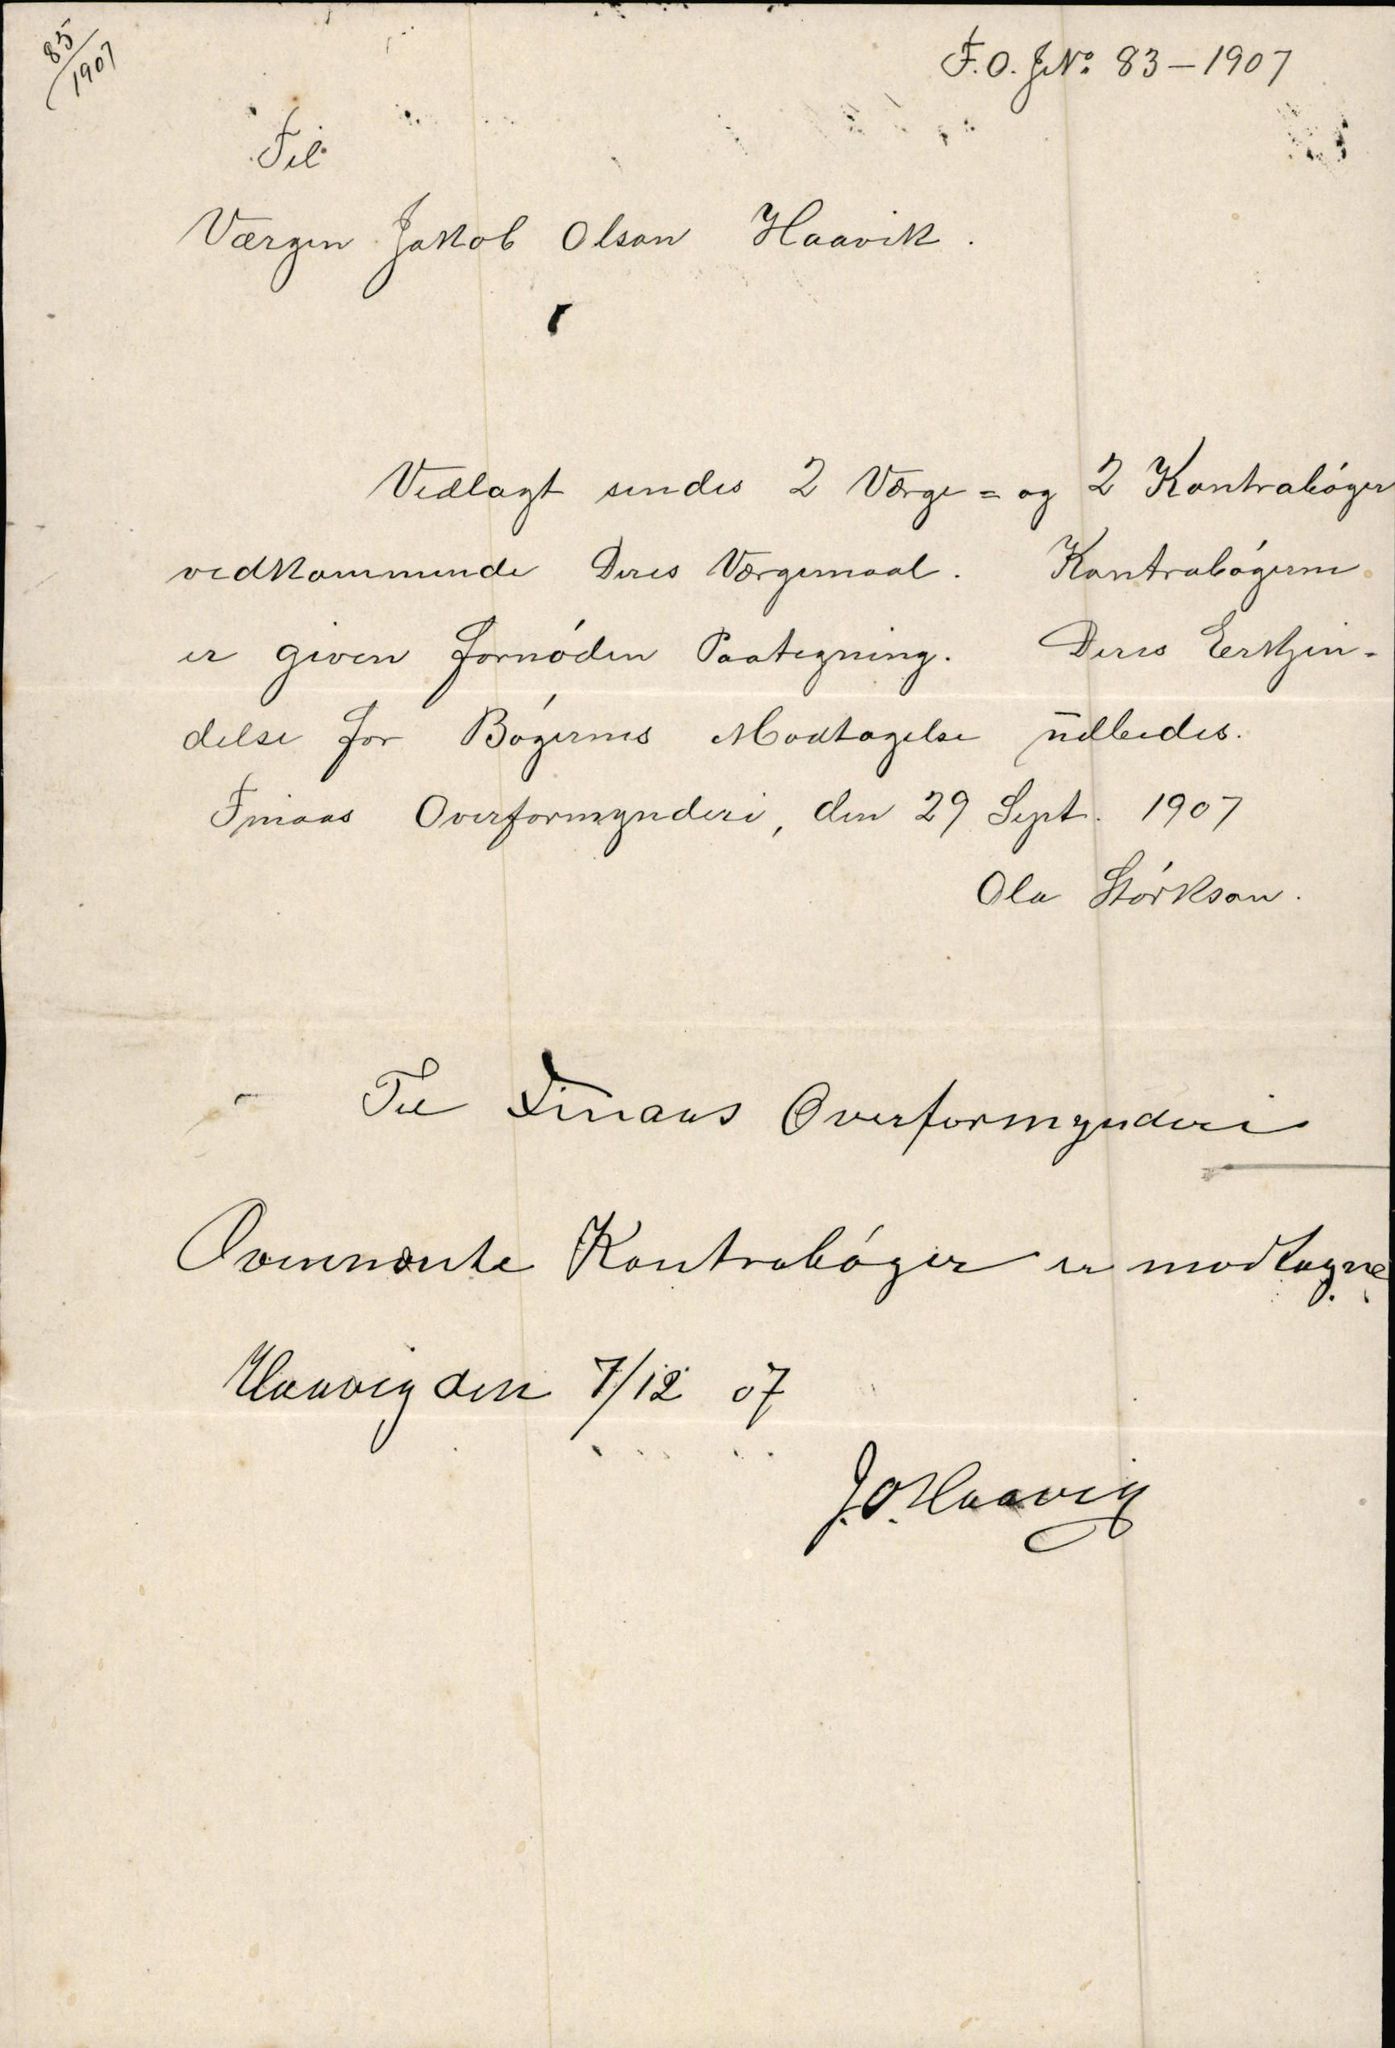 85/1907
F.O. JNo. 83 – 1907
Til
Værgen Jakob Olson Haavik.
Vedlagt sendes 2 Værge= og 2 Kontrabøger
vedkommende Deres Værgemaal. Kontrabøgerne
er given fornøden Paategning. Deres Erkjen-
delse for Bøgernes Modtagelse udbedes.
Finaas Overformynderi, den 29 Sept. 1907
Ola Størkson.
Til Finaas Overformynderi
Ovennævnte Kontrabøger er modtagne
Haavig den 7/12 07
J.O. Haavig